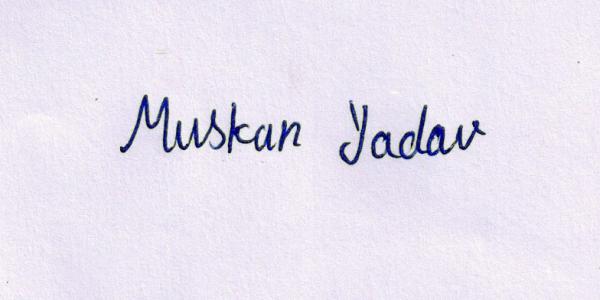 Muskan Yadav